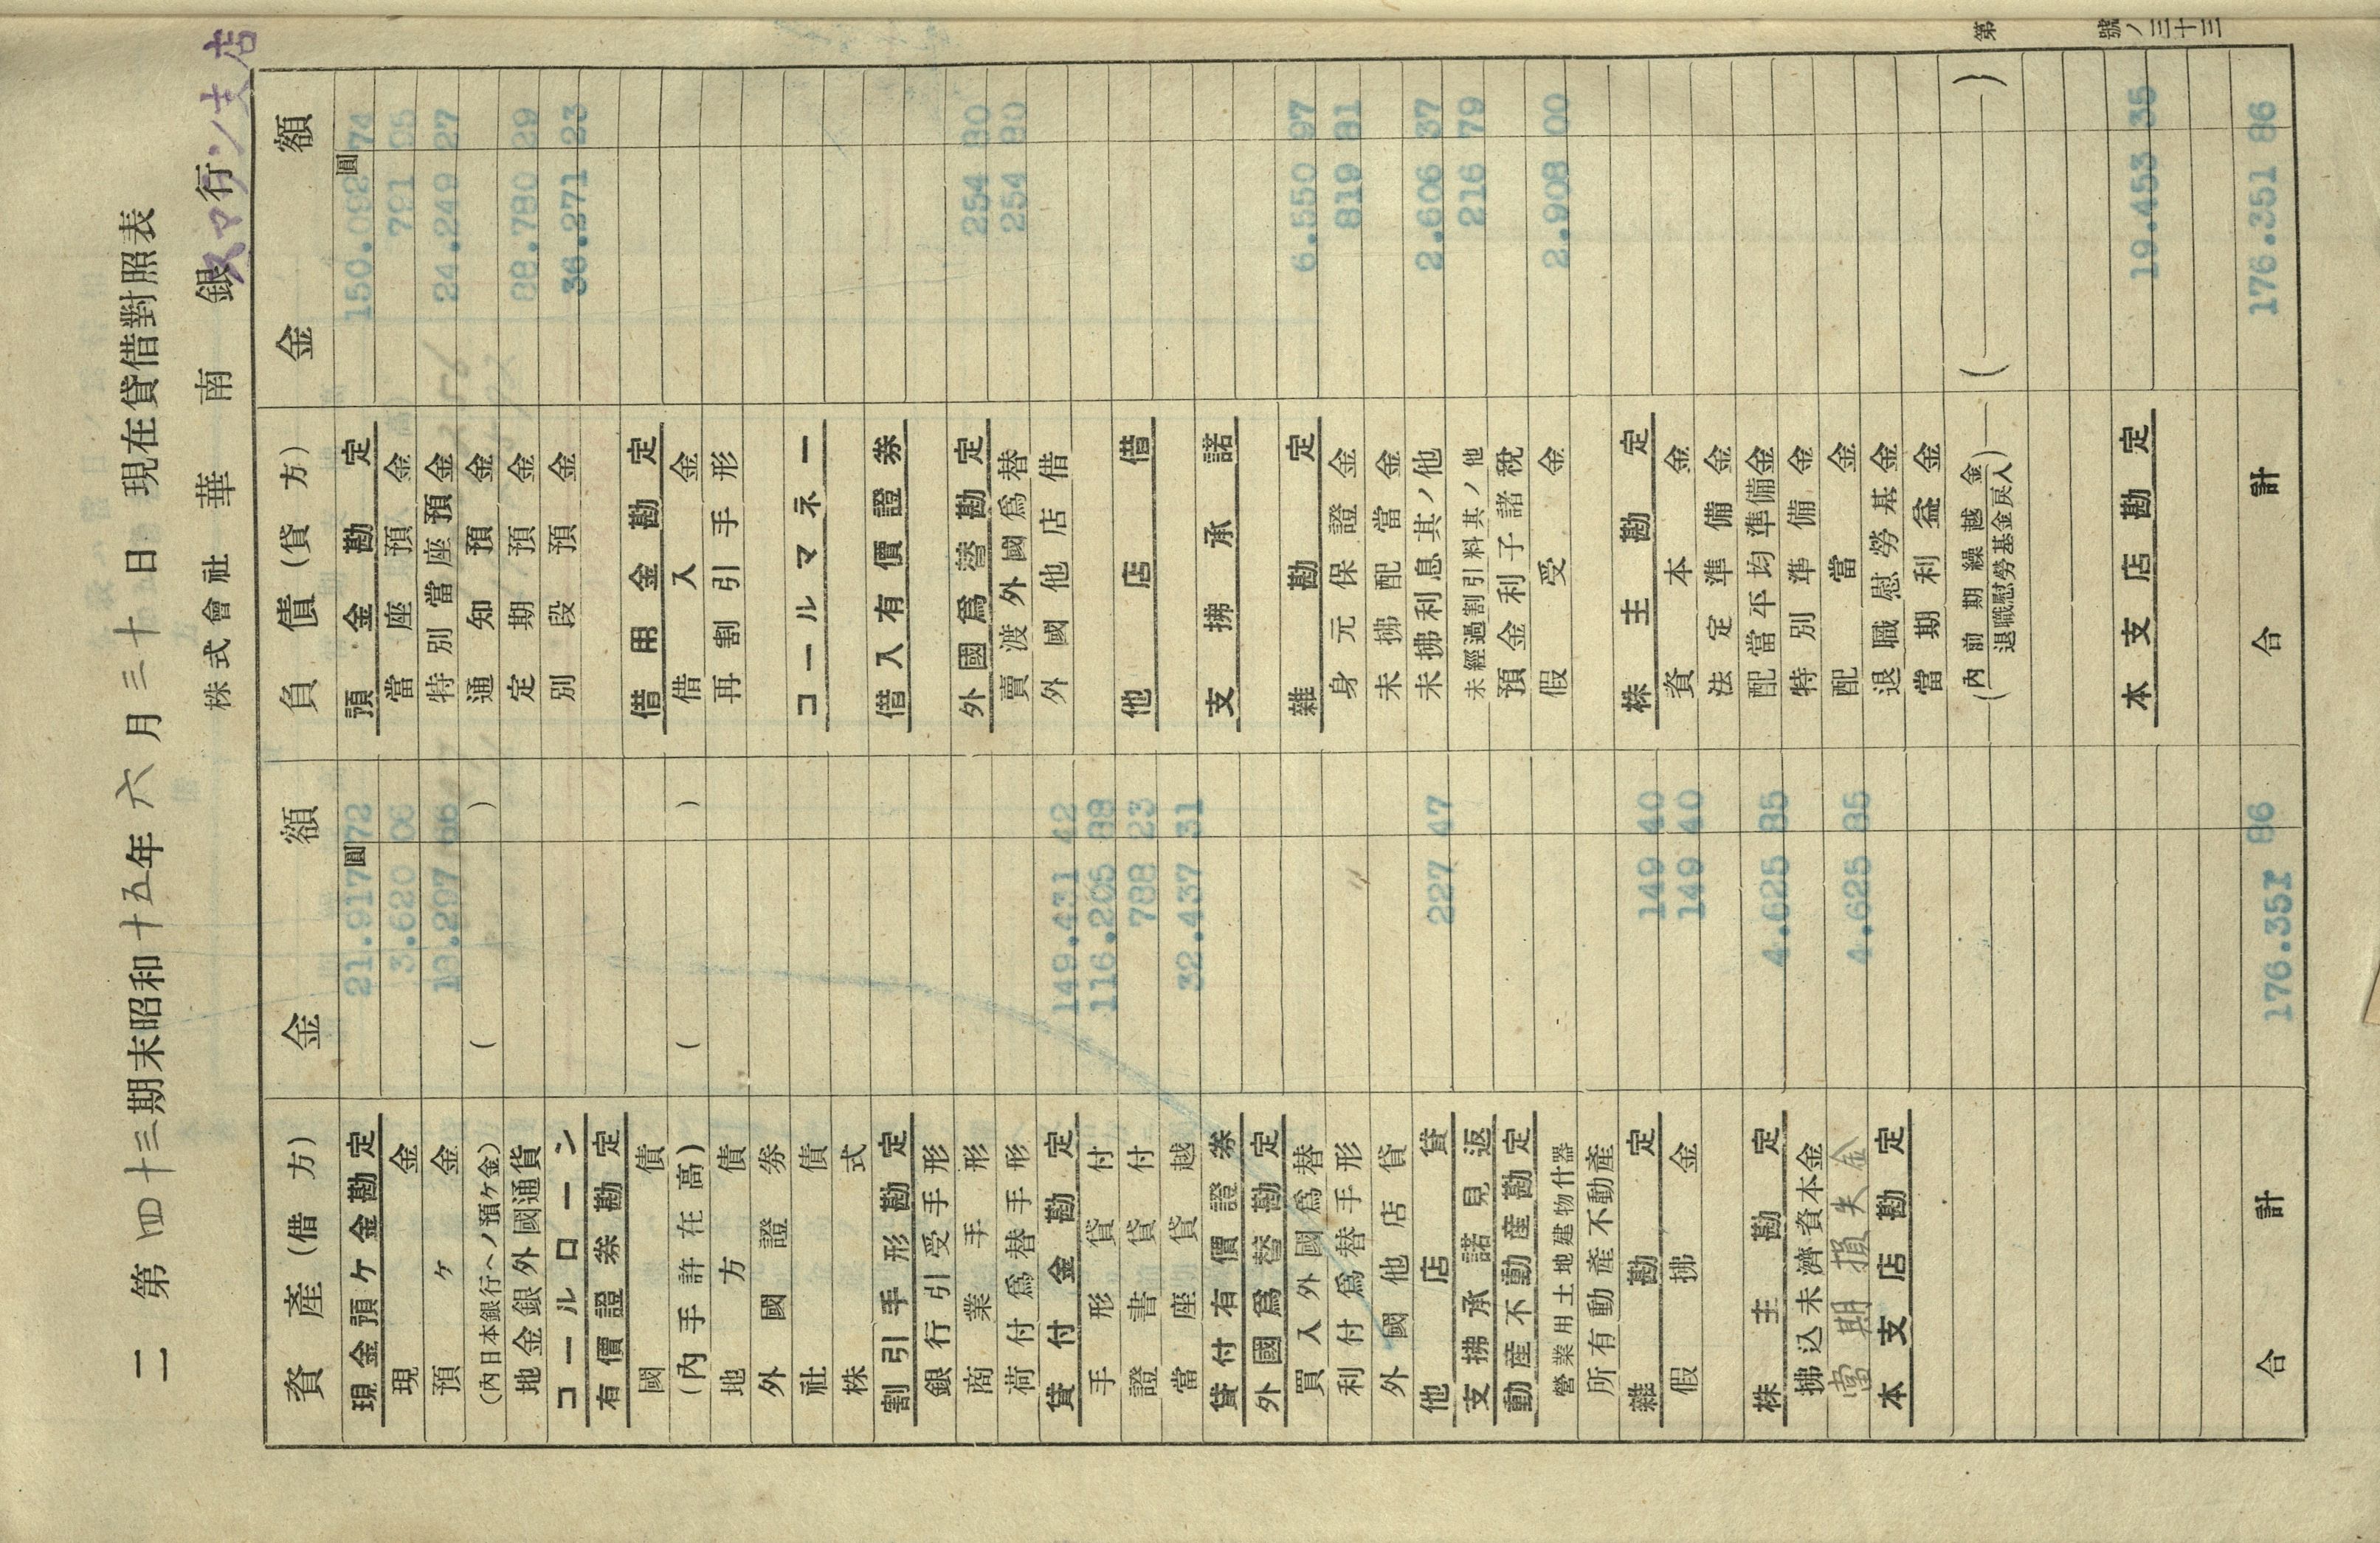 第 號ノ三十三
二 第四十三期末昭和十五年六月三十日現在貸借對照表
株式會社 華南銀行 スマラン支店
資產(借方) 金額 負債(貸方) 金額
現金預ケ金勘定 21.917圓72 預金勘定 150.092圓74
現金 3.620 06 當座預金 791 95
預ケ金 18.297 66 特別當座預金 24.249 27
(內日本銀行ヘノ預ケ金) ( ) 通知預金
地金銀外國通貨 定期預金 88.780 29
コールローン 別段預金 36.271 23
有價證券勘定
國債 借用金勘定
(內手許在高) ( ) 借入金
地方債 再割引手形
外國證券
社債 コールマネー
株式
割引手形勘定 借入有價證券
銀行引受手形
商業手形 外國爲替勘定 254 80
荷付爲替手形 賣渡外國爲替 254 80
貸付金勘定 149.431 42 外國他店借
手形貸付 116.205 88
證書貸付 788 23 他店借
當座貸越 32.437 31
貸付有價證券 支拂承諾
外國爲替勘定
買入外國爲替 雜勘定 6.550 97
利付爲替手形 身元保證金 819 81
外國他店貸 未拂配當金
他店貸 227 47 未拂利息其ノ他 2.606 37
支拂承諾見返 未經過割引料其ノ他 216 79
動產不動產勘定 預金利子諸稅
營業用土地建物什器 假受金 2.908 00
所有動產不動產
雜勘定 149 40 株主勘定
假拂金 149 40 資本金
法定準備金
株主勘定 4.625 85 配當平均準備金
拂込未濟資本金 特別準備金
當期損失金 4.625 85 配當金
本支店勘定 退職慰勞基金
當期利益金
(內 前期繰越金 退職慰勞基金戾入) ( )
本支店勘定 19.453 35
合計 176.351 86 合計 176.351 86